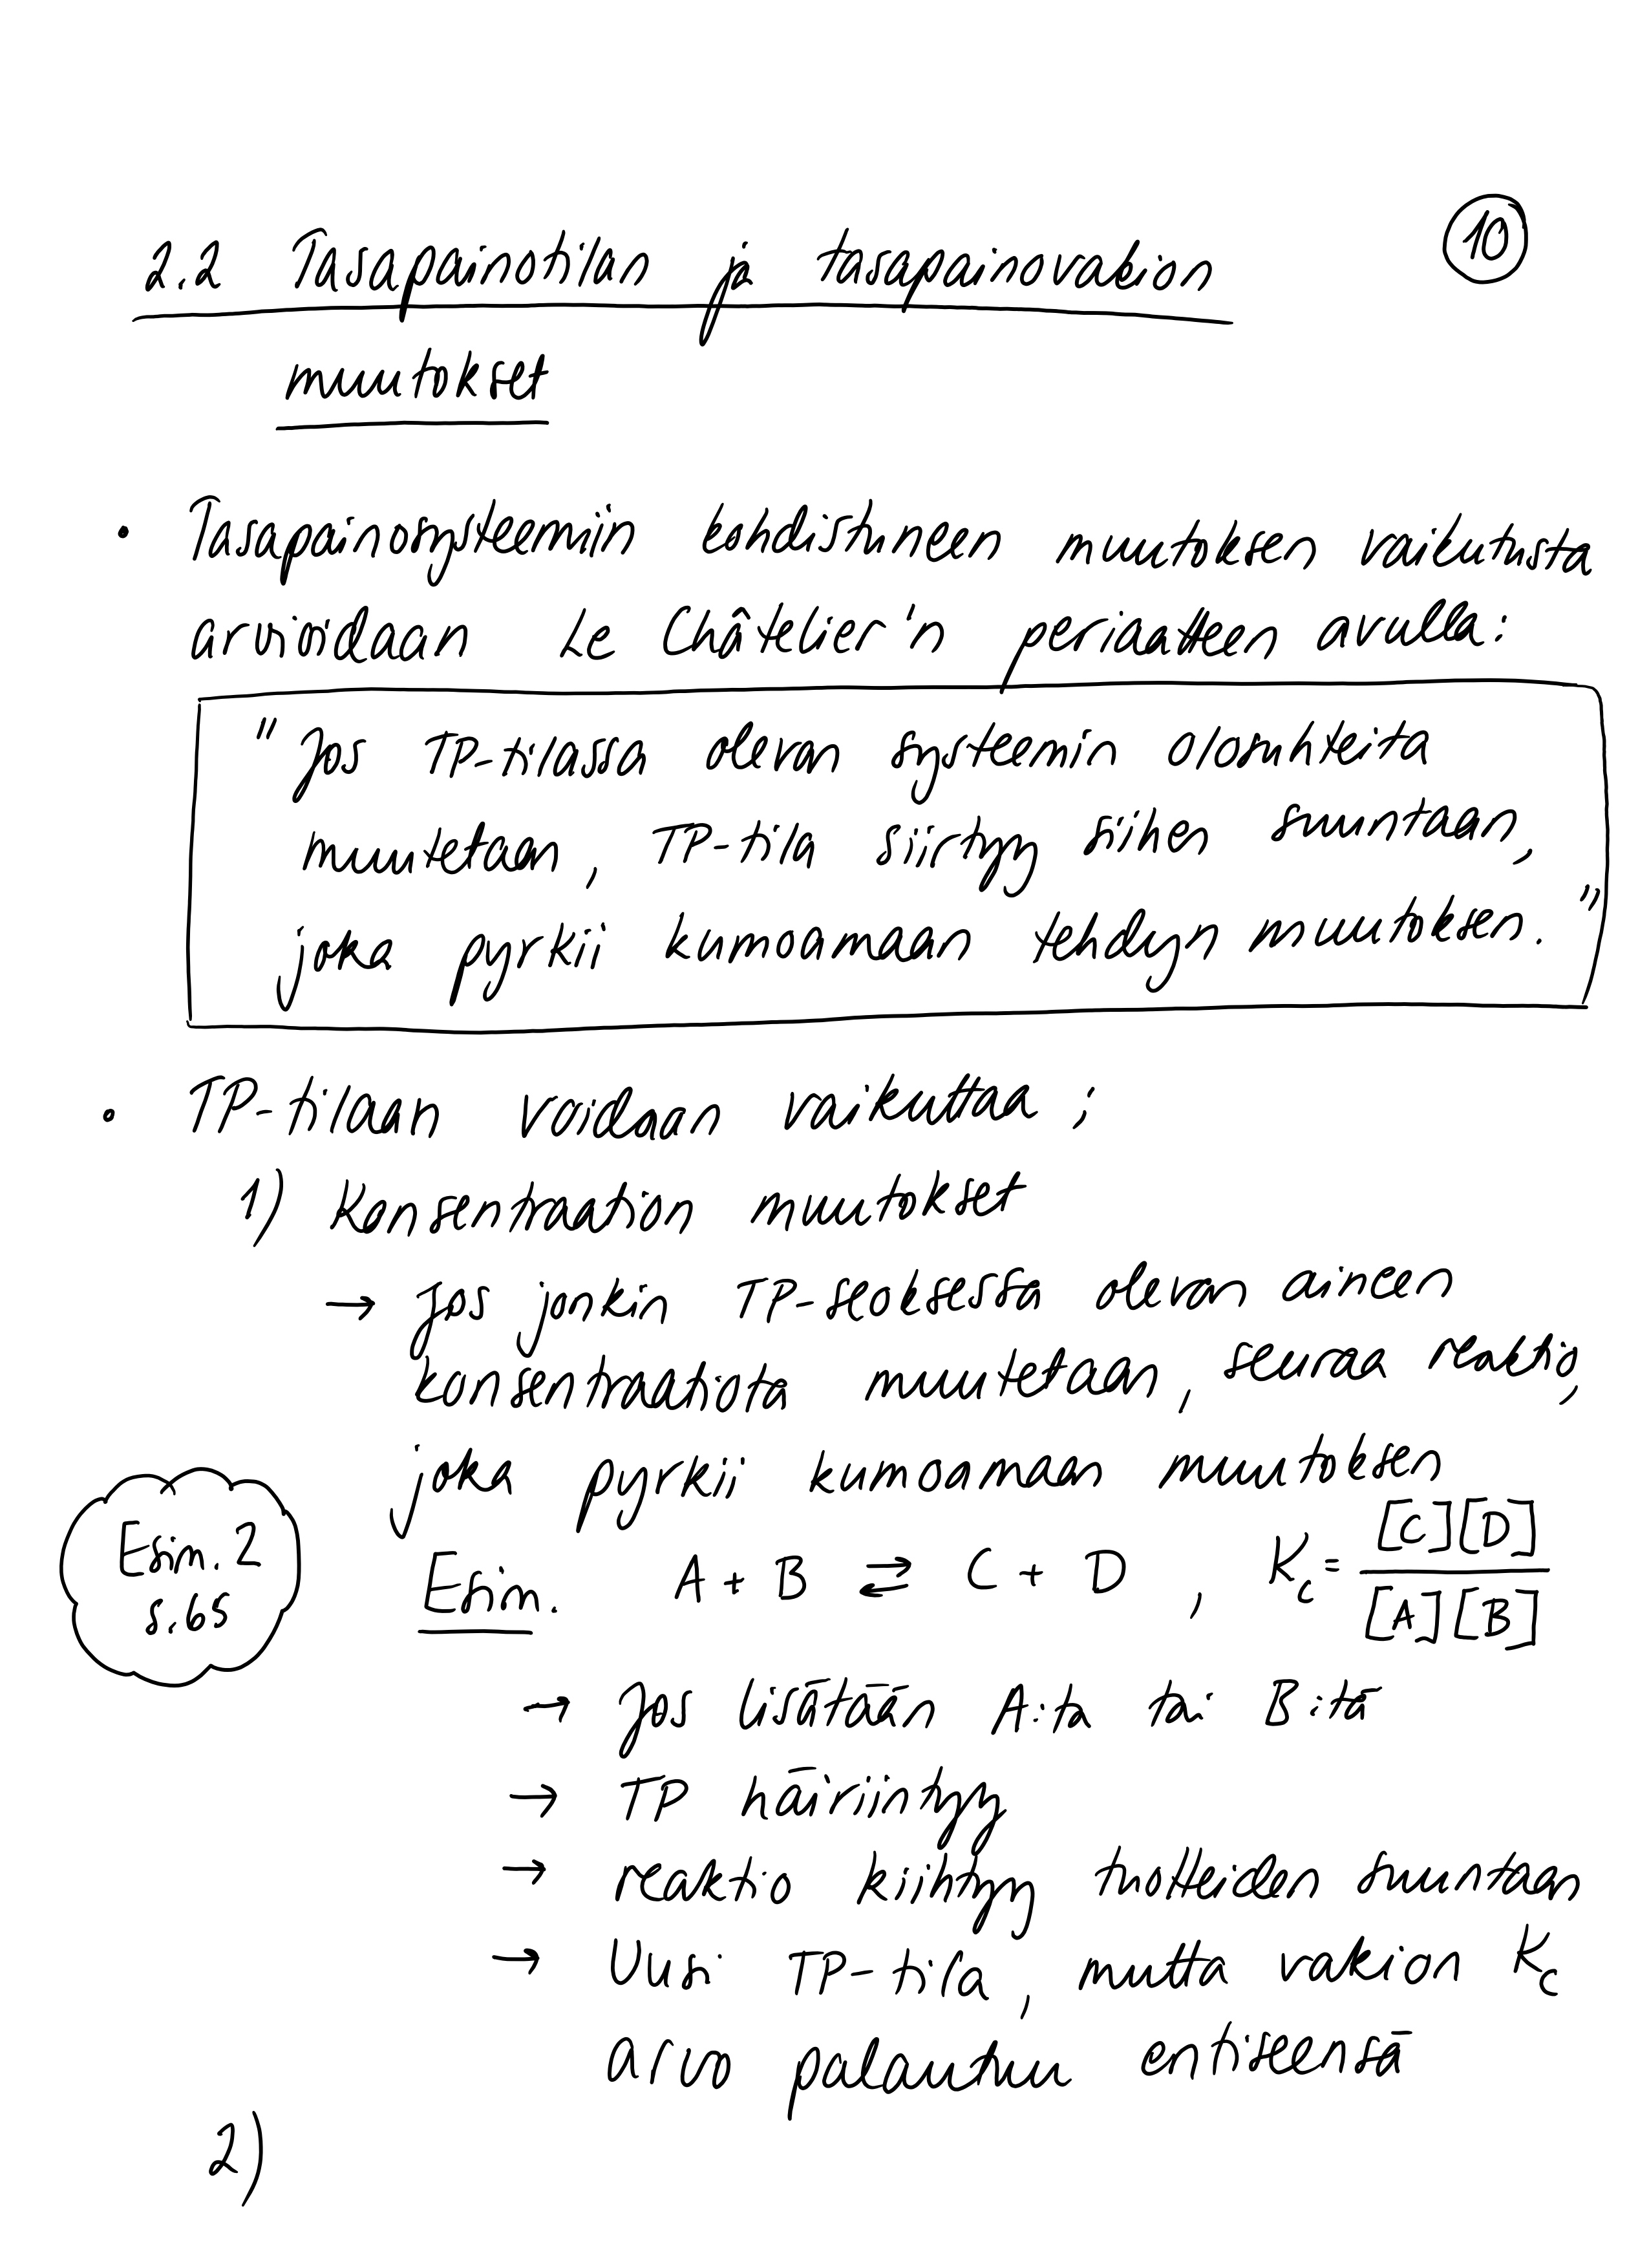 10
2.2 Tasapainotilan ja tasapainovakion
muutokset
• Tasapainosysteemiin kohdistuneen muutoksen vaikutusta
arvioidaan Le Châtelier'n periaatteen avulla:
" Jos TP-tilassa olevan systeemin olosuhteita
muutetaan, TP-tila siirtyy siihen suuntaan,
joka pyrkii kumoamaan tehdyn muutoksen. "
• TP-tilaan voidaan vaikuttaa ;
1) Konsentraation muutokset
→ Jos jonkin TP-seoksessa olevan aineen
konsentraatiota muutetaan, seuraa reaktio,
joka pyrkii kumoamaan muutoksen
Esim. 2
s.65
Esim. A + B ⇄ C + D , Kc = [C][D] / [A][B]
→ Jos lisätään A:ta tai B:tä
→ TP häiriintyy
→ reaktio kiihtyy tuotteiden suuntaan
→ Uusi TP-tila, mutta vakion Kc
arvo palautuu entiseensä
2)